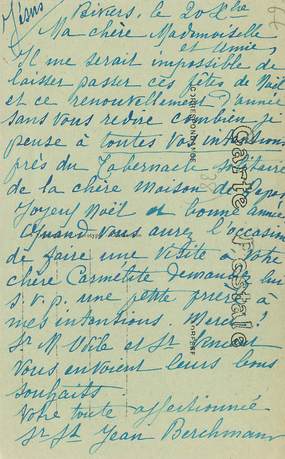 Jésus
Bivers, le 20 Xbre
Ma chère Mademoiselle
et Amie,
Il me serait impossible de
laisser passer ces fêtes de Noël
et ce renouvellement d'année
sans vous redire combien je
pense à toutes vos intentions
près du Tabernacle solitaire
de la chère Maison de Repos
Joyeux Noël et bonne année
Quand vous aurez l'occasion
de faire une visite à votre
chère Carmélite demandez lui
s.v.p. une petite prière à
mes intentions. Merci!
Sr M et Sr Vincent
vous envoient leurs bons
souhaits.
Votre toute affectionnée
Sr St Jean Berchmans
Carte Postale
CORRESPONDANCE